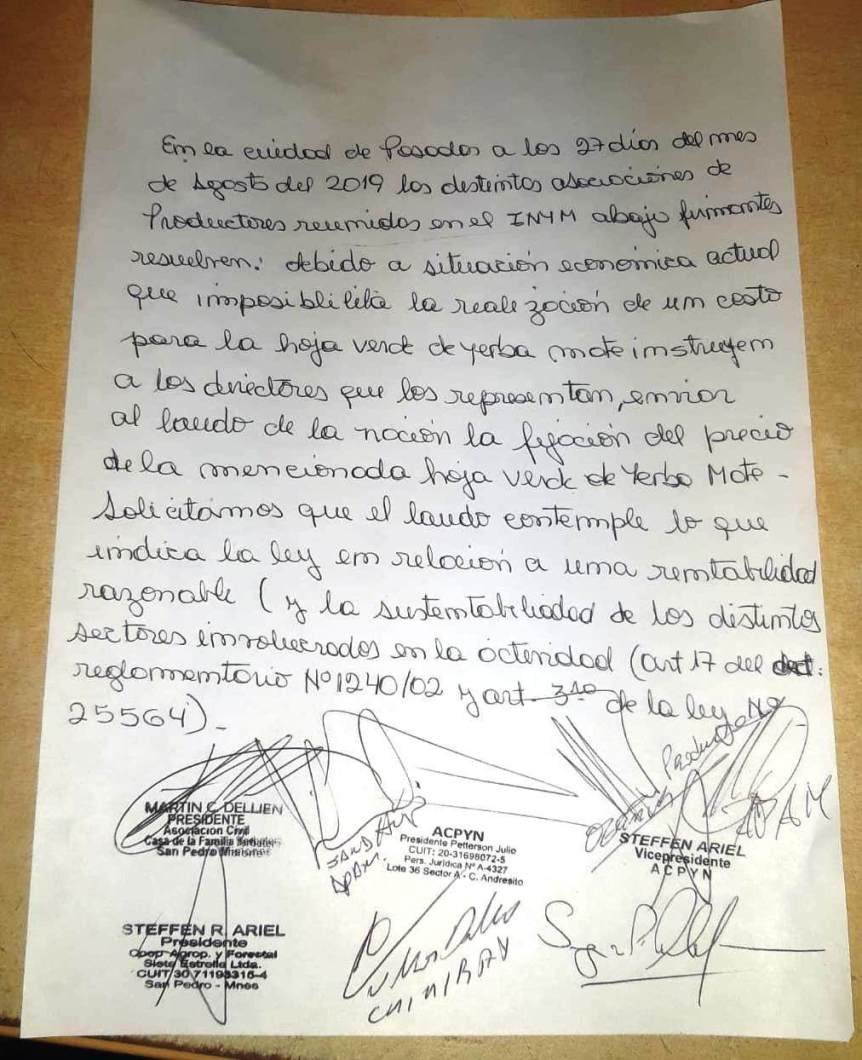 En la ciudad de Posadas a los 27 días del mes
de Agosto del 2019 las distintas asociaciones de
Productores reunidos en el INYM abajo firmantes
resuelven: debido a situación económica actual
que imposiblilita la realización de un costo
para la hoja verde de yerba mate instruyen
a los directores que los representan, enviar
al laudo de la nación la fijación del precio
de la mencionada hoja verde de Yerba Mate -
Solicitamos que el laudo contemple lo que
indica la ley en relación a una rentabilidad
razonable (y la sustentabilidad de los distintos
sectores involucrados en la actividad (art 17 del dect:
reglamentario Nº 1240/02 y art. 3º de la ley Nº
25564).
MARTIN C. DELLIEN
PRESIDENTE
Asociación Civil
Casa de la Familia
San Pedro Misiones
APAM.
ACPYN
Presidente Petterson Julio
CUIT: 20-31698072-5
Pers. Jurídica Nº A-4327
Lote 36 Sector A - C. Andresito
Productores
APAM
STEFFEN ARIEL
Vicepresidente
ACPYN
STEFFEN R. ARIEL
Presidente
Coop Agrop. y Forestal
Siete Estrella Ltda.
CUIT/30/71193316-4
San Pedro - Mnes